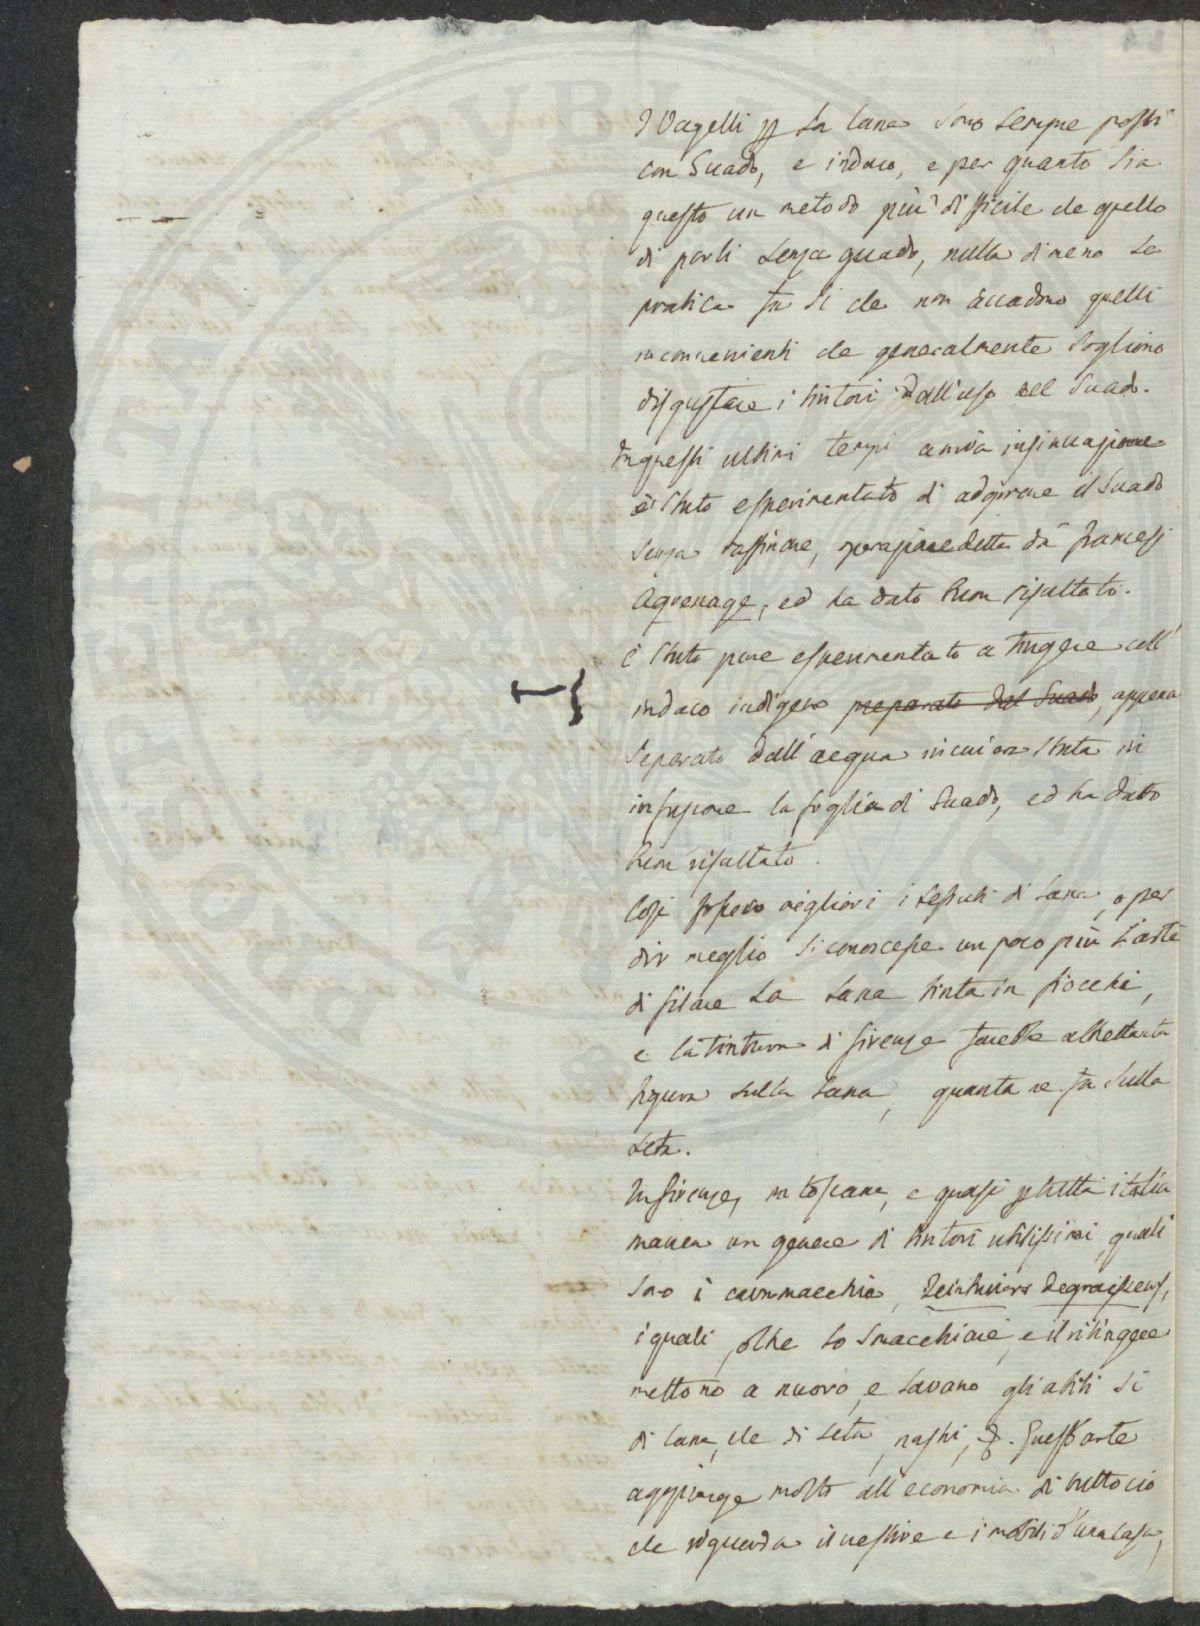 I Vagelli p la lana sono sempre posti
con Guado, e indaco, e per quanto sia
questo un metodo più difficile che quello
di porli senza guado, nulla di meno la
pratica fa si che non accadono quelli
inconvenienti che generalmente sogliono
disgustare i tintori dall'uso del Guado.
In questi ultimi tempi a mia insinuazione
è stato esperimentato di adoprare il Guado
senza raffinare, operazione detta da francesi
Agrenage, ed ha dato buon risultato.
È stato pure esperimentato a tingere coll'
indaco indigeno preparato dal Guado, appena
separato dall'acqua in cui era stata in
infusione la foglia di Guado, ed ha dato
buon risultato.
Così fossero migliori i tessuti di lana, o per
dir meglio si conoscesse un poco più l'arte
di filare la lana tinta in fiocchi,
e la tintura di firenze farebbe altrettanta
figura sulla lana, quanta ne fa sulla
seta.
In firenze, in toscana, e quasi p tutta italia
manca un genere di tintori utilissimi, quali
sono i cavamacchie, Teinturiers degraisseurs,
i quali, oltre lo smacchiare, e il ritingere
mettono a nuovo, e lavano gli abiti si
di lana, che di seta, nastri, &. Quest'arte
aggiunge molto all'economia di tutto ciò
che riguarda il vestire e i mobili d'una casa,